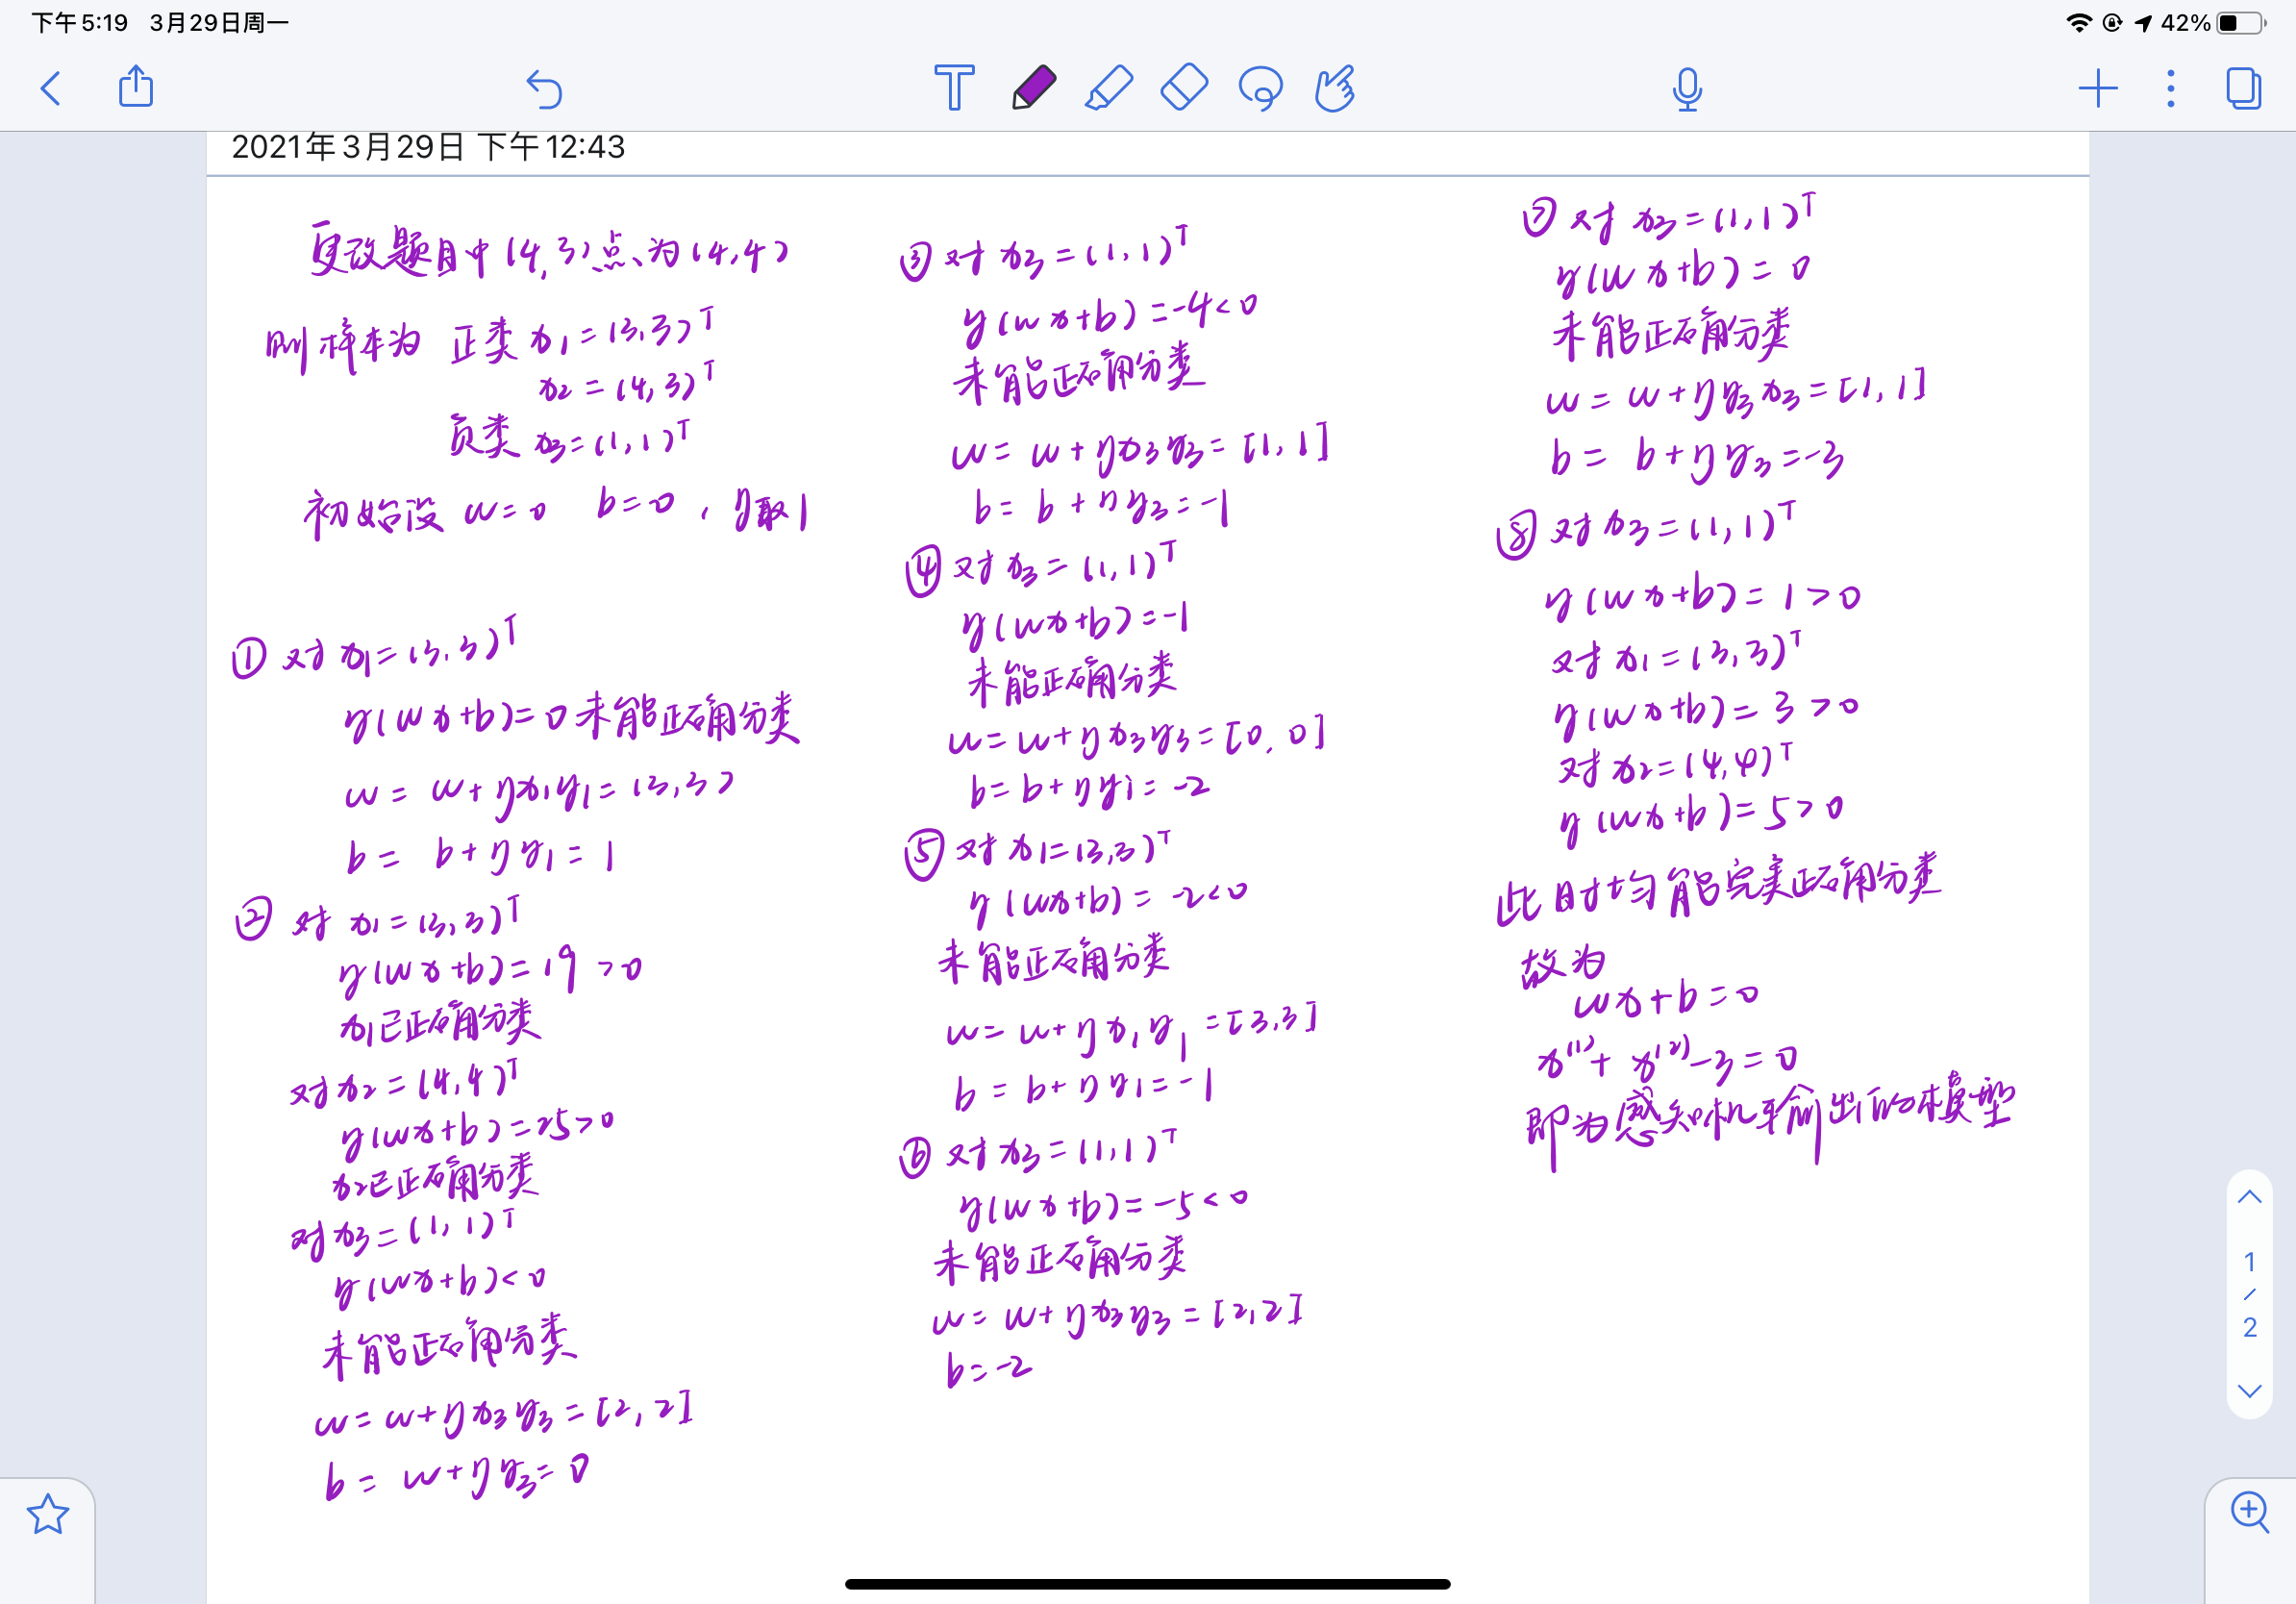 下午5:19 3月29日周一
42%
2021年3月29日 下午12:43
更改题目中(4,3)点、为(4,4)
则样本为 正类 x₁=(3,3)ᵀ
x₂=(4,3)ᵀ
负类 x₃=(1,1)ᵀ
初始设 w=0 b=0,η取1
① 对 x₁=(3,3)ᵀ
y(wx+b)=0 未能正确分类
w= w+ηx₁y₁=(3,3)
b= b+ηy₁=1
② 对 x₁=(3,3)ᵀ
y(wx+b)=19>0
x₁已正确分类
对x₂=(4,4)ᵀ
y(wx+b)=25>0
x₂已正确分类
对x₃=(1,1)ᵀ
y(wx+b)<0
未能正确分类
w=w+ηx₃y₃=[2,2]
b= w+ηy₃=0
③ 对 x₃=(1,1)ᵀ
y(wx+b)=-4<0
未能正确分类
w= w+ηx₃y₃=[1,1]
b= b+ηy₃=-1
④ 对 x₃=(1,1)ᵀ
y(wx+b)=-1
未能正确分类
w=w+ηx₃y₃=[0,0]
b=b+ηyi=-2
⑤ 对 x₁=(3,3)ᵀ
y(wx+b)=-2<0
未能正确分类
w=w+ηx₁y₁=[3,3]
b=b+ηy₁=-1
⑥ 对x₃=(1,1)ᵀ
y(wx+b)=-5<0
未能正确分类
w=w+ηx₃y₃=[2,2]
b=-2
⑦ 对 x₃=(1,1)ᵀ
y(wx+b)=0
未能正确分类
w=w+ηy₃x₃=[1,1]
b= b+ηy₃=-3
⑧ 对 x₃=(1,1)ᵀ
y(wx+b)=1>0
对x₁=(3,3)ᵀ
y(wx+b)=3>0
对x₂=(4,4)ᵀ
y(wx+b)=5>0
此时均能完美正确分类
故为
wx+b=0
x⁽¹⁾+x⁽²⁾-3=0
即为感知机输出的模型
1
/
2